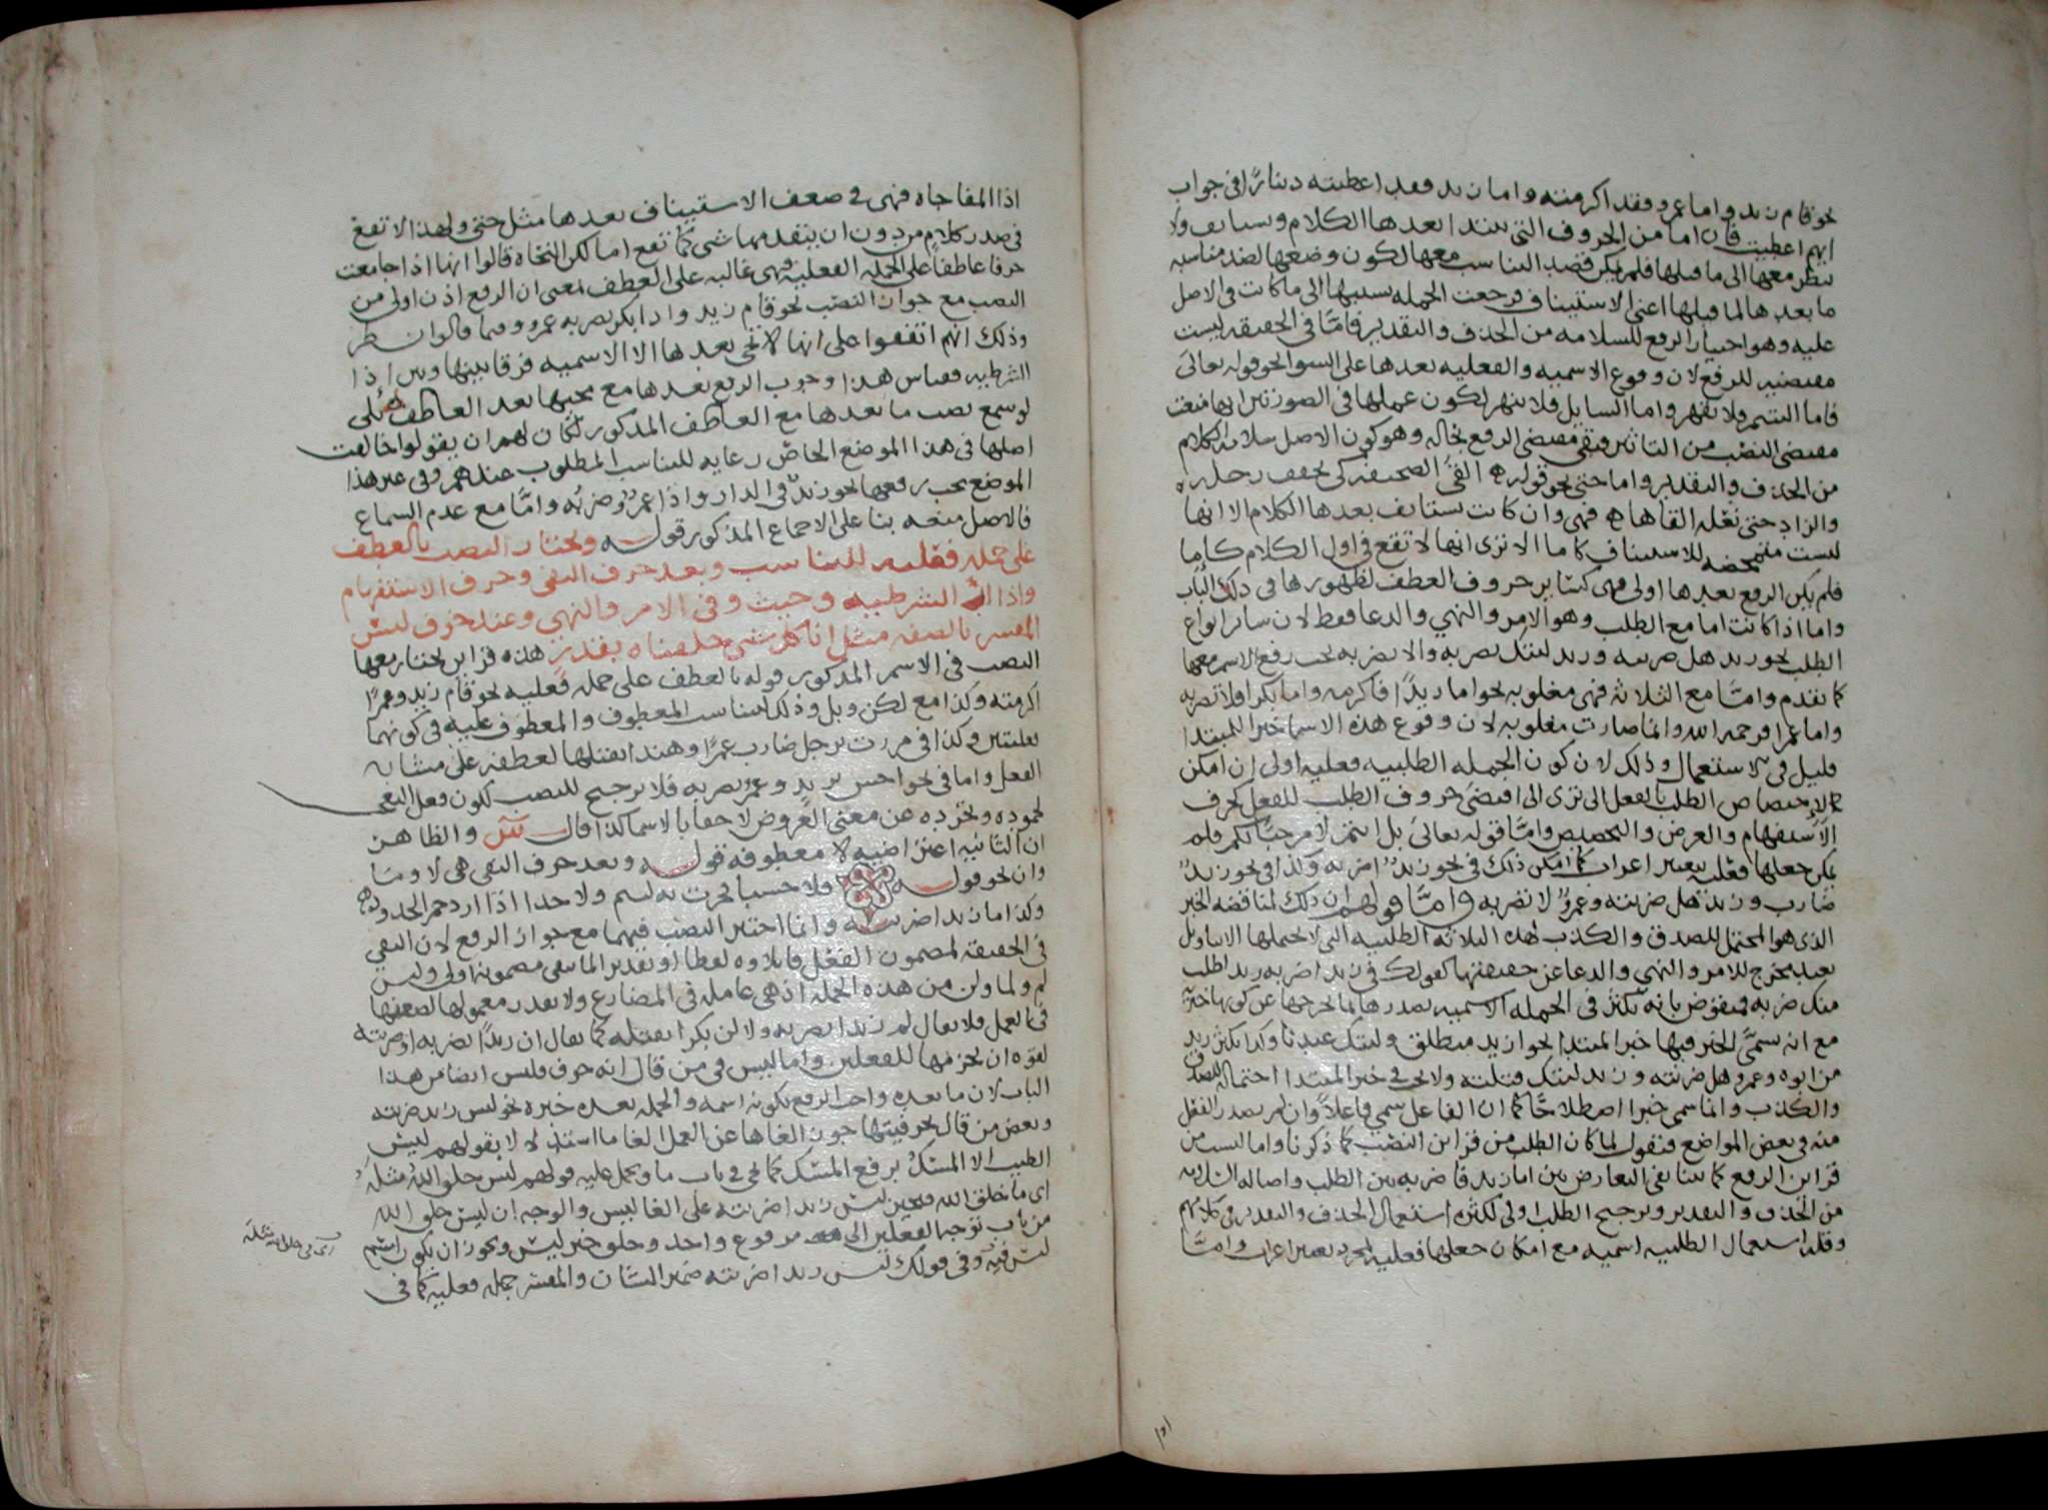 نحو قام زيد واما عمرو فقد اكرمته واما زيد فقد اعطيته دينارا في جواب
ايهم اعطيت فان اما من الحروف التي يبتدا بعدها الكلام ويستانف ولا
ينظر معها الى ما قبلها فلم يكن قصد التناسب معها لكون وضعها لضد مناسبه
ما بعدها لما قبلها اعني الاستيناف فرجعت الجمله بسببها الى ما كانت في الاصل
عليه وهو اختيار الرفع للسلامه من الحذف والتقدير فامّا في الحقيقه ليست
مقتضيه للرفع لان وقوع الاسميه والفعليه بعدها على السوا نحو قوله تعالى
فاما اليتيم فلا تقهر واما السايل فلا تنهر لكون عملها في الصورتين انها منعت
مقتضى النصب من التاثير فبقي مقتضى الرفع بحاله وهو كون الاصل سلامه الكلام
من الحذف والتقدير واما حتى نحو قوله القى الصحيفه كي يخفف رحله
والزاد حتى نعله القاها فهي وان كانت يستانف بعدها الكلام الا انها
ليست متمحضه للاستيناف كاما الا ترى انها لا تقع في اول الكلام كاما
فلم يكن الرفع بعدها اولى فهي كساير حروف العطف لظهورها في ذلك الباب
واما اذا كانت اما مع الطلب وهو الامر والنهي والدعا فقط لان ساير انواع
الطلب نحو زيد هل ضربته وزيد ليتك تضربه والا تضربه يجب رفع الاسم معها
كما تقدم وامّا مع الثلاثه فهي مغلوبه نحو اما زيدًا فاكرمه واما بكرا فلا تضربه
واما عمرا فرحمه الله وانما صارت مغلوبه لان وقوع هذه الاسما خبرا للمبتدا
قليل في الاستعمال وذلك لان كون الجمله الطلبيه فعليه اولى ان امكن
لاختصاص الطلب بالفعل الا ترى الى اقتضى حروف الطلب للفعل كحرف
الاستفهام والعرض والتحضيض وامّا قوله تعالى بل انتم لا مرحبًا بكم فلم
يمكن جعلها فعليه بتغيير اعراب كما امكن ذلك في نحو زيدٌ اضربه وكذا في نحو زيدٌ
ضارب وزيد هل ضربته وعمروٌ لا تضربه وامّا قولهم ان ذلك لمناقضه الخبر
الذي هو المحتمل للصدق والكذب لهذه الثلاثه الطلبيه التي لا تحتملها الا بتاويل
بعيد مخرج للامر والنهي والدعا عن حقيقتها كقولك في زيد اضربه زيد اطلب
منك ضربه فمنقوض بانه تكثر في الجمله الاسميه تصدرها بما يخرجها عن كونها خبريه
مع انه يسمّى الخبر فيها خبر المبتدا نحو ازيد منطلق وليتك عندنا وكذا يكثر زيد
من ابوه وعمرو هل ضربته وزيد ليتك قتلته ولا يجب في خبر المبتدا احتماله للصدق
والكذب وانما سمي خبرا اصطلاحًا كما ان الفاعل سمي فاعلًا وان لم يصدر الفعل
منه في بعض المواضع فنقول لما كان الطلب من قراين النصب كما ذكرنا واما ليست من
قراين الرفع كما بينا بقي التعارض بين اما زيد فاضربه بين الطلب واصاله السلامه
من الحذف والتقدير وترجيح الطلب اولى لكثره استعمال الحذف والتقدير في كلامهم
وقله استعمال الطلبيه اسميه مع امكان جعلها فعليه لمجرد تغيير اعراب وامّا
اذا المفاجاه فهي في ضعف الاستيناف بعدها مثل حتى ولهذا لا تقع
في صدر كلام من دون ان يتقدمها شي كما تقع اما لكن النحاه قالوا انها اذا جامعت
حرفا عاطفا على الجمله الفعليه فهي غالبه على العطف بمعنى ان الرفع اذن اولى من
النصب مع جواز النصب نحو قام زيد واذا بكر يضربه عمرو وفيما قالوا نظر
وذلك انهم اتفقوا على انها لا تجي بعدها الا الاسميه فرقا بينها وبين اذا
الشرطيه فقياس هذا وجوب الرفع بعدها مع مجيها بعد العاطف بلى
لو سمع نصب ما بعدها مع العاطف المذكور لكان لهم ان يقولوا خالفت
اصلها في هذا الموضع الخاص رعايه للتناسب المطلوب عندهم وفي غير هذا
الموضع يجب رفعها نحو زيدٌ في الدار واذا عمروٌ ضربُه وامّا مع عدم السماع
فالاصل منعه بنا على الاجماع المذكور قوله ويختار النصب بالعطف
على جمله فعليه للتناسب وبعد حرف النفي وحرف الاستفهام
واذا الشرطيه وحيث وفي الامر والنهي وعند خوف لبس
المفسر بالصفه مثل انا كل شي خلقناه بقدر هذه قراين يختار معها
النصب في الاسم المذكور قوله بالعطف على جمله فعليه نحو قام زيد وعمرًا
اكرمته وكذا مع لكن وبل وذلك لتناسب المعطوف والمعطوف عليه في كونهما
فعليتين وكذا في مررت برجل ضارب عمرًا وهندا يقتلها لعطفه على مشابه
الفعل واما في نحو احسن بزيد وعمروٌ يضربه فلا ترجيح للنصب لكون فعل التعجب
لجموده وتجرده عن معنى العروض لاحقا بالاسما كذا قال والظاهر
ان الثانيه اعتراضيه لا معطوفه قوله وبعد حرف النفي هي لا وما
وان نحو قوله فلا حسبا فخرت به لتيم ولا جدا اذا ازدحم الجدود
وكذا ما زيدا ضربته وانما اختير النصب فيهما مع جواز الرفع لان النفي
في الحقيقه لمضمون الفعل فايلاوه لفظا او تقديرا لما ينفي مضمونه اولى وليس
لم ولما ولن من هذه الجمله اذ هي عامله في المضارع ولا يقدر معمولها لضعفها
في العمل فلا يقال لم زيدا تضربه ولا لن بكرا يقتله كما يقال ان زيدًا تضربه او ضربته
لقوه ان لجزمها للفعلين واما ليس في من قال انه حرف فليس ايضا من هذا
الباب لان ما بعده واجب الرفع بكونه اسمه والجمله بعده خبره نحو ليس زيد ضربته
وبعض من قال بحرفيتها جوز الغاها عن العمل الغا ما استدلالا بقولهم ليس
الطيب الا المسكُ برفع المسك كما يجي في باب ما ويحمل عليه قولهم ليس خلق اللهُ مثلَه
اي ما خلق الله فيجيز ليس زيدا ضربته على الغا ليس والوجه ان ليس خلق الله
من باب توجه الفعلين الى مرفوع واحد وخلق خبر ليس ويجوز ان يكون اسم
ليس فيه وفي قولك ليس زيدا ضربته ضمير الشان والمفسر جمله فعليه كما في